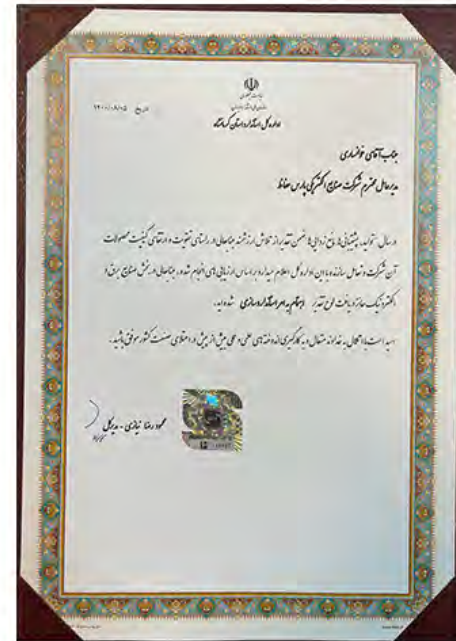 ریاست جمهوری
اداره کل استاندارد استان کرمانشاه
تاریخ ۱۴۰۰/۰۸/۰۵
جناب آقای خوانساری
مدیرعامل محترم شرکت صنایع الکتریکی پارس حفاظ
در سال "تولید، پشتیبانی ها، مانع زدایی ها" ضمن تقدیر از تلاش ارزشمند جنابعالی در راستای تقویت و ارتقای کیفیت محصولات
آن شرکت و تعامل سازنده با این اداره کل اعلام میدارد بر اساس ارزیابی های انجام شده، جنابعالی در بخش صنایع برق و
الکترونیک حائز دریافت لوح تقدیر اهتمام به امر استانداردسازی شده اید.
امید است با اتکال به خداوند متعال و به کارگیری اندوخته های علمی و عملی بیش از پیش در اعتلای صنعت کشور موفق باشید.
محمود رضا نیازی - مدیرکل